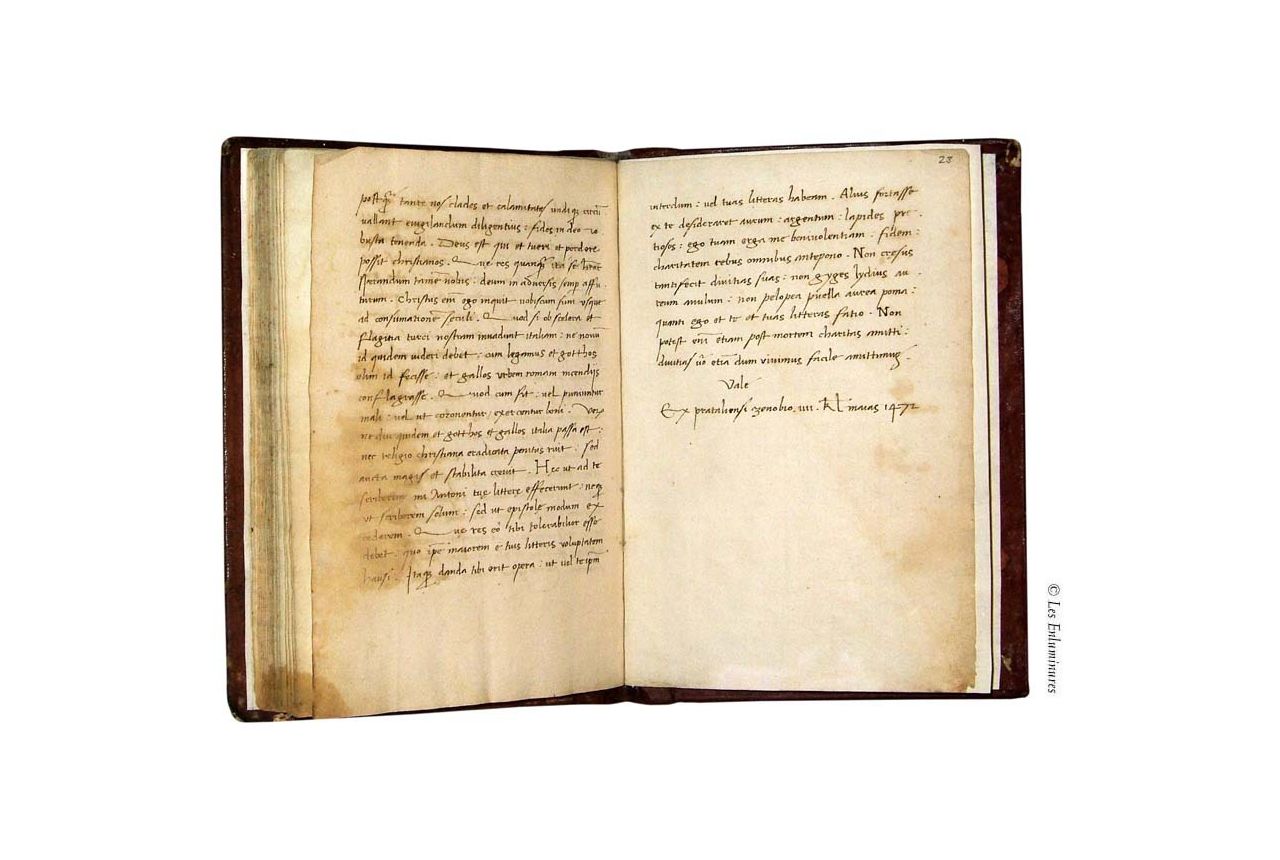 postq̃ tante nos clades et calamitates undiq; circũ
vallant evigilandum diligentius: fides in deo ro
busta tenenda. Deus est qui et tueri et perdere
possit christianos. Que res quanq̃ ita se
tamen nobis: deum in adversis semp affu
turum. Christus em̃ ego inquit vobiscum sum usque
ad consumationẽ seculi. Quod si ob scelera et
flagitia turci nostram invadunt italiam: ne novũ
id quidem videri debet: cum legamus et gotthos
olim id fecisse: et gallos urbem romam incendijs
conflagrasse. Quod cum fit: vel puniuntur
mali: vel ut coronentur, exercentur boni. Verũ
ne diu quidem et gotthos et gallos italia passa est:
nec religio christiana eradicata penitus ruit: sed
aucta magis et stabilita crevit. Hec ut ad te
scriberem mi Antoni tuę litterę effecerunt: neq;
ut scriberem solum: sed ut epistole modum ex
cederem. Que res eõ tibi tolerabilior esse
debet: quo ip̃e maiorem e tuis litteris voluptatem
hausi. Itaq; danda tibi erit opera: ut vel te ip̃m
23
interdum: vel tuas litteras habeam. Alius fortasse
ex te desideraret aurum: argentum: lapides pre
tiosos: ego tuam erga me benivolentiam: fidem:
charitatem rebus omnibus antepono. Non cresus
tanti fecit divitias suas: non gyges lydius au
reum anulum: non pelopea puella aurea poma:
quanti ego et te et tuas litteras fatio. Non
potest em̃ etiam post mortem charitas amitti:
divitias ṽo etiã dum vivimus facile amittimus.
Vale
Ex prataliensi zenobio. iiii. kl maias 1472
© Les Enluminures